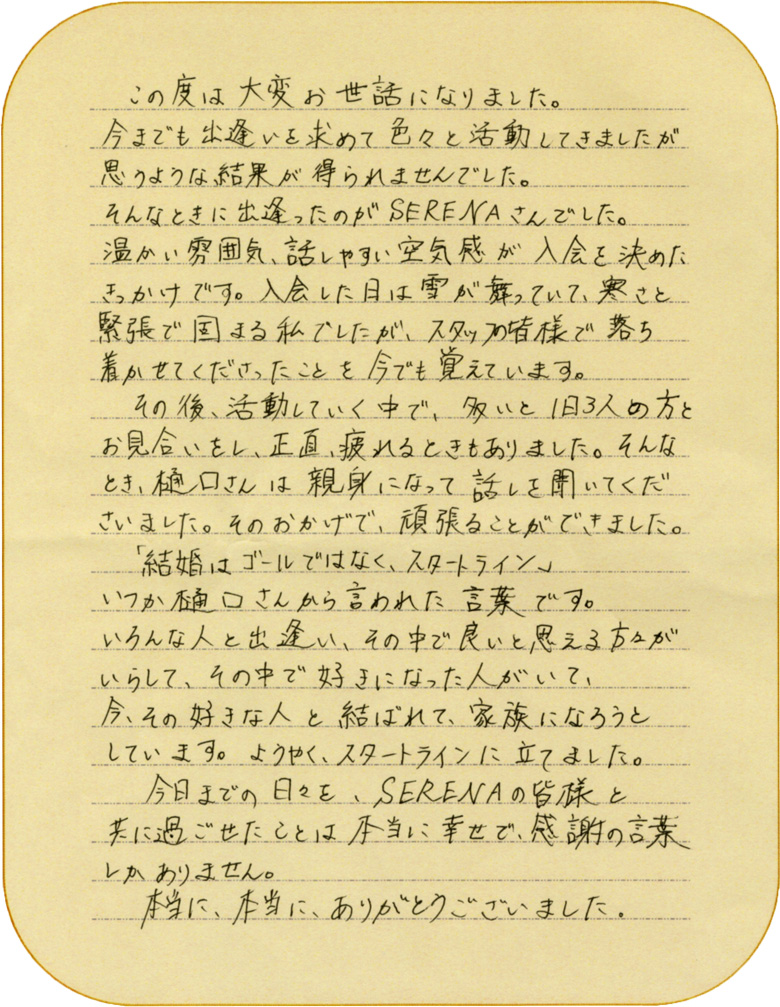 この度は大変お世話になりました。
今までも出逢いを求めて色々と活動してきましたが
思うような結果が得られませんでした。
そんなときに出逢ったのがSERENAさんでした。
温かい雰囲気、話しやすい空気感が入会を決めた
きっかけです。入会した日は雪が舞っていて、寒さと
緊張で固まる私でしたが、スタッフの皆様で落ち
着かせてくださったことを今でも覚えています。
その後、活動していく中で、多いと1日3人の方と
お見合いをし、正直、疲れるときもありました。そんな
とき、樋口さんは親身になって話しを聞いてくだ
さいました。そのおかげで、頑張ることができました。
「結婚はゴールではなく、スタートライン」
いつか樋口さんから言われた言葉です。
いろんな人と出逢い、その中で良いと思える方々が
いらして、その中で好きになった人がいて、
今、その好きな人と結ばれて、家族になろうと
しています。ようやく、スタートラインに立てました。
今日までの日々を、SERENAの皆様と
共に過ごせたことは本当に幸せで、感謝の言葉
しかありません。
本当に、本当に、ありがとうございました。